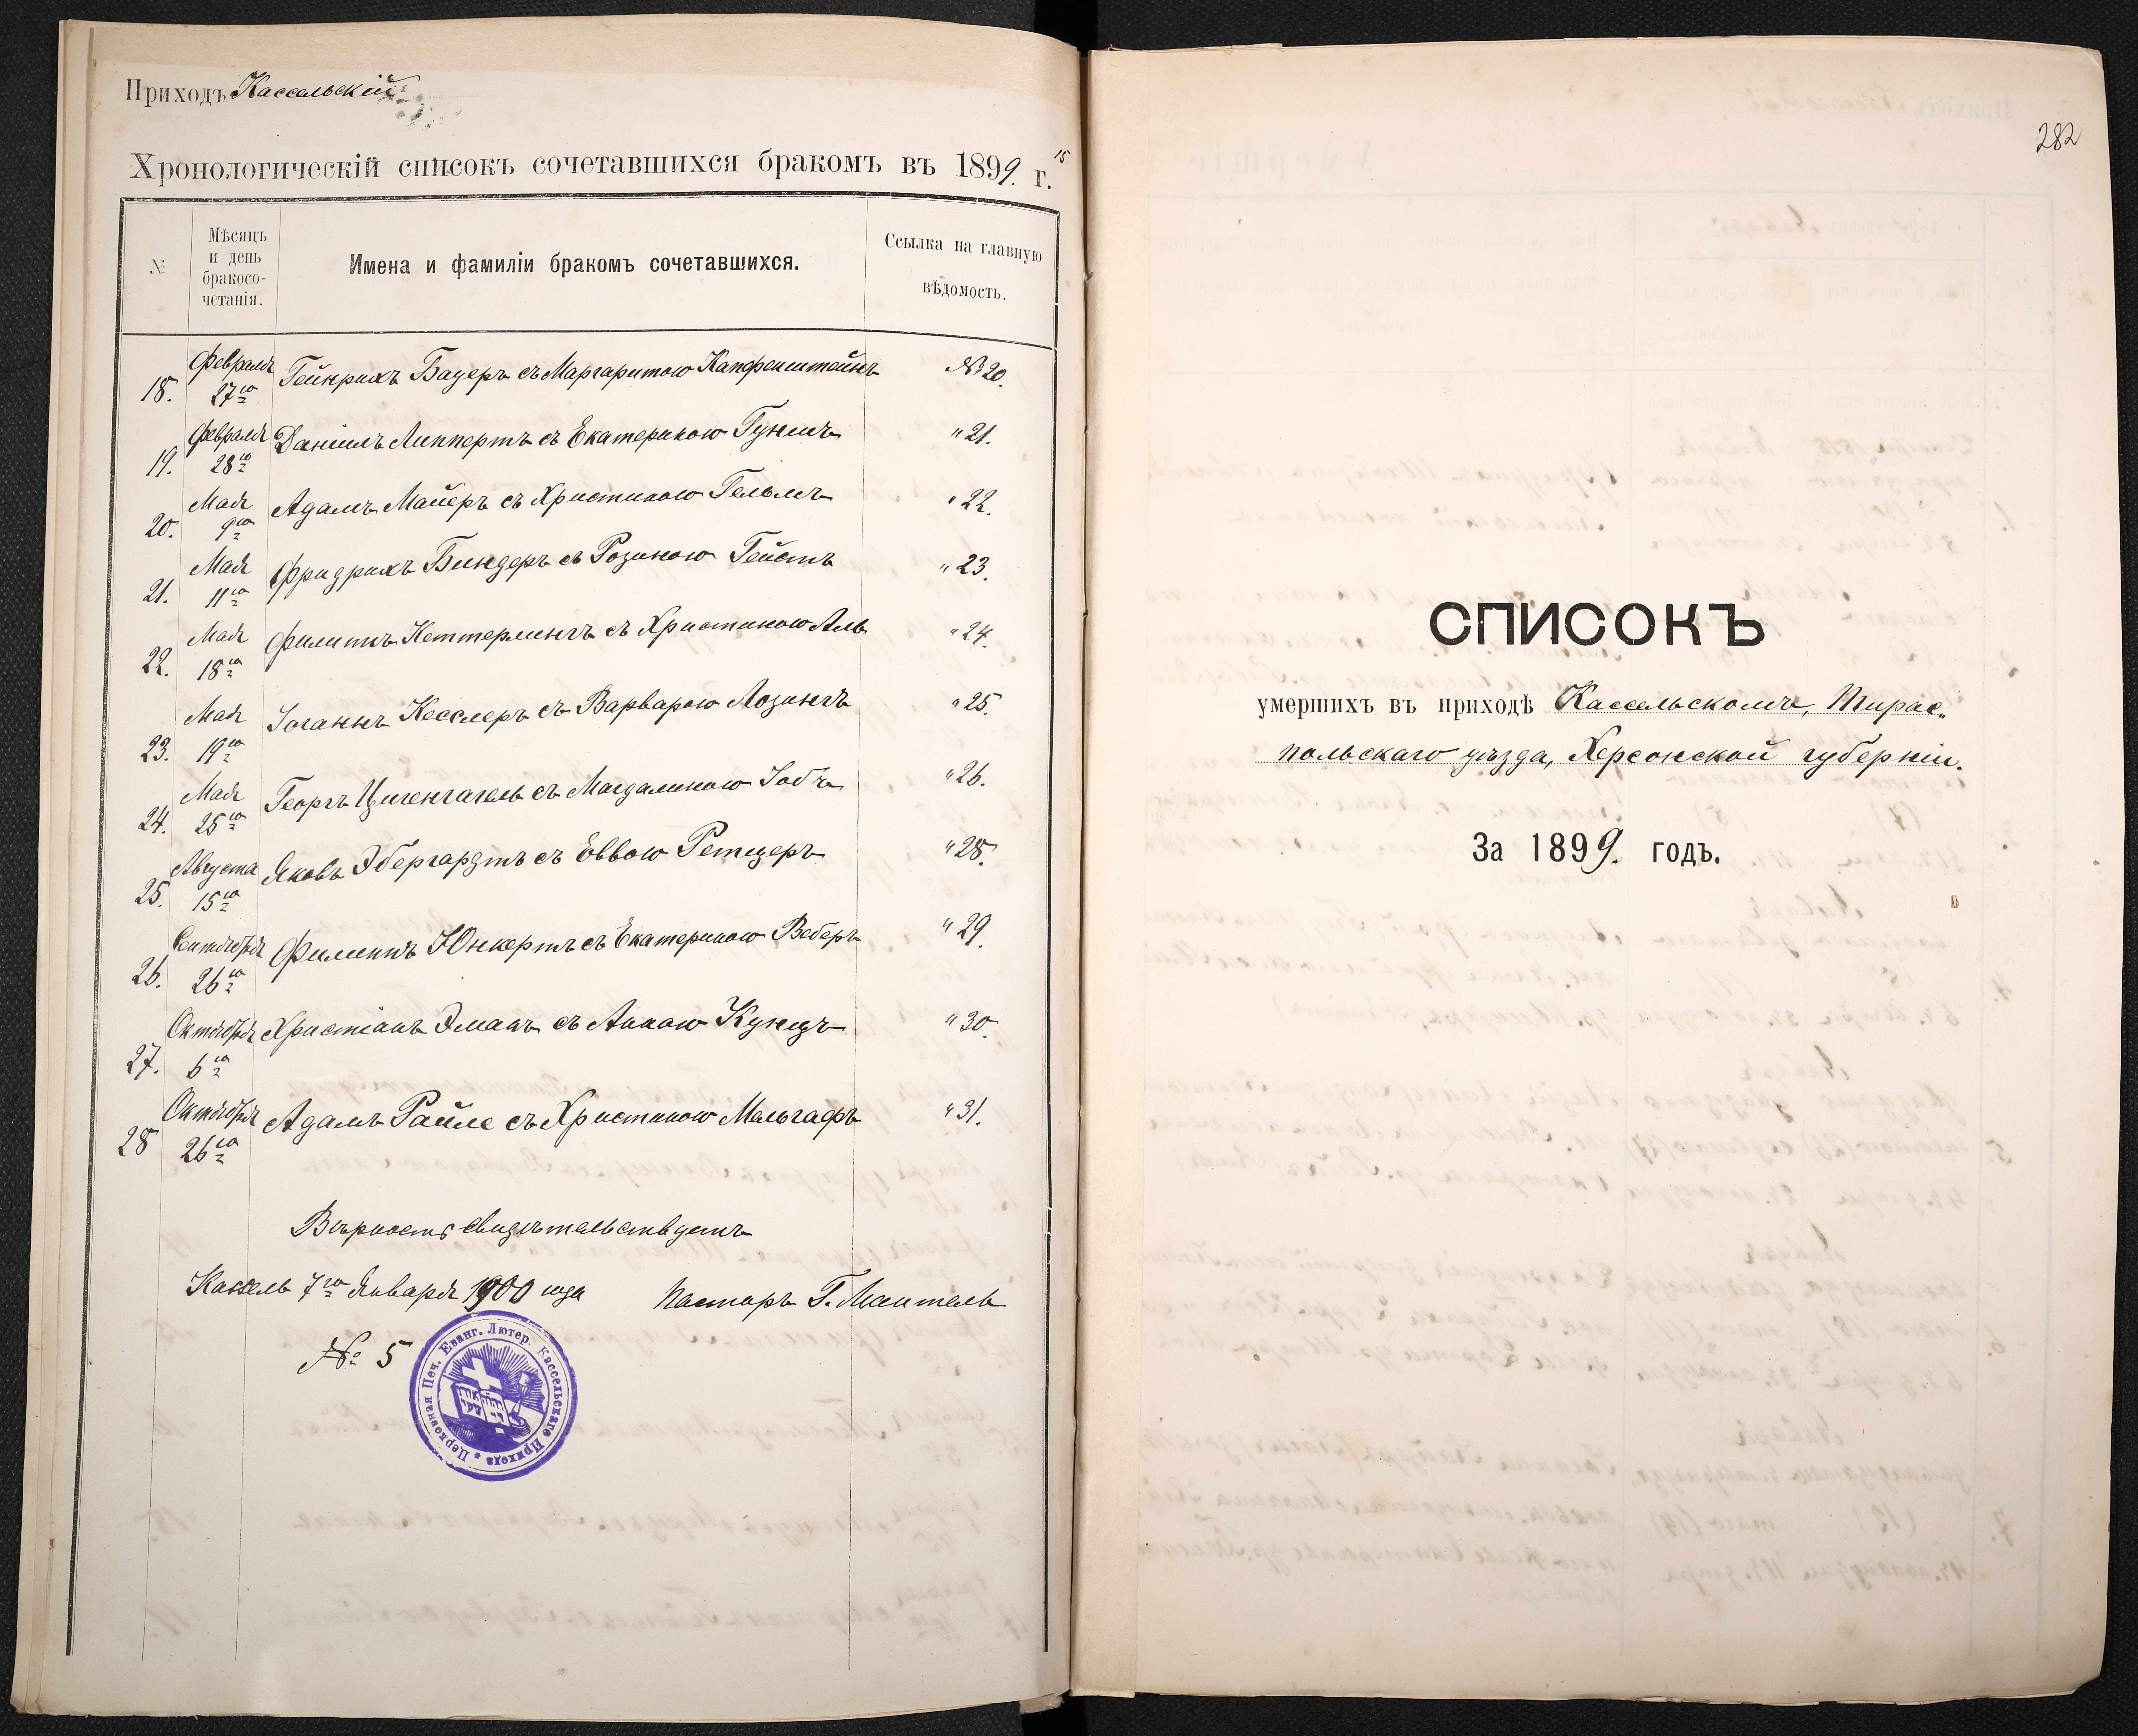 Приходъ Кассельскій
Хронологическій списокъ сочетавшихся бракомъ въ 1899. г.
15
№
Мѣсяцъ
и день
бракосо-
четанія.
Имена и фамиліи бракомъ сочетавшихся.
Ссылка на главную
вѣдомость.
18. Февраля 27го Гейнрихъ Бауеръ съ Маргаритою Капфенштейнъ №20.
19. Февраля 28го Даніилъ Липпертъ съ Екатериною Гуншъ " 21.
20. Мая 9го Адамъ Майеръ съ Христиною Гельмъ " 22.
21. Мая 11го Фридрихъ Биндеръ съ Розиною Гейстъ " 23.
22. Мая 18го Филиппъ Кеттерлингъ съ Христиною Аль " 24.
23. Мая 19го Іоганнъ Кесслеръ съ Варварою Лозингъ " 25.
24. Мая 25го Георгъ Цигенгагель съ Магдалиною Іобъ " 26.
25. Августа 15го Яковъ Эбергардтъ съ Еввою Ретцеръ " 28.
26. Сентября 26го Филиппъ Юнкертъ съ Екатериною Веберъ " 29.
27. Октября 6го Христіанъ Эманъ съ Анною Кунцъ " 30.
28 Октября 26го Адамъ Райле съ Христиною Мельгафъ " 31.
Вѣрность свидѣтельствуетъ
Кассель 7го Января 1900 года Пасторъ Г. Мантель
№ 5
Церковная Печ. Еванг. Лютер. Кассельскаго Прихода
282
СПИСОКЪ
умершихъ въ приходѣ Кассельскомъ, Тирас-
польскаго уѣзда, Херсонской губерніи.
За 1899. годъ.